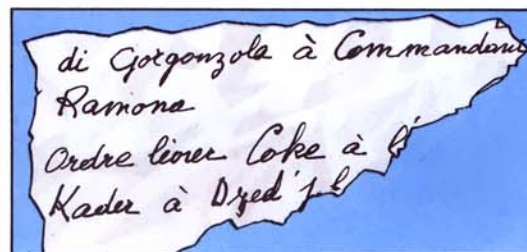 di Gorgonzola à Commandant
Ramona
Ordre livrer Coke à
Kader à